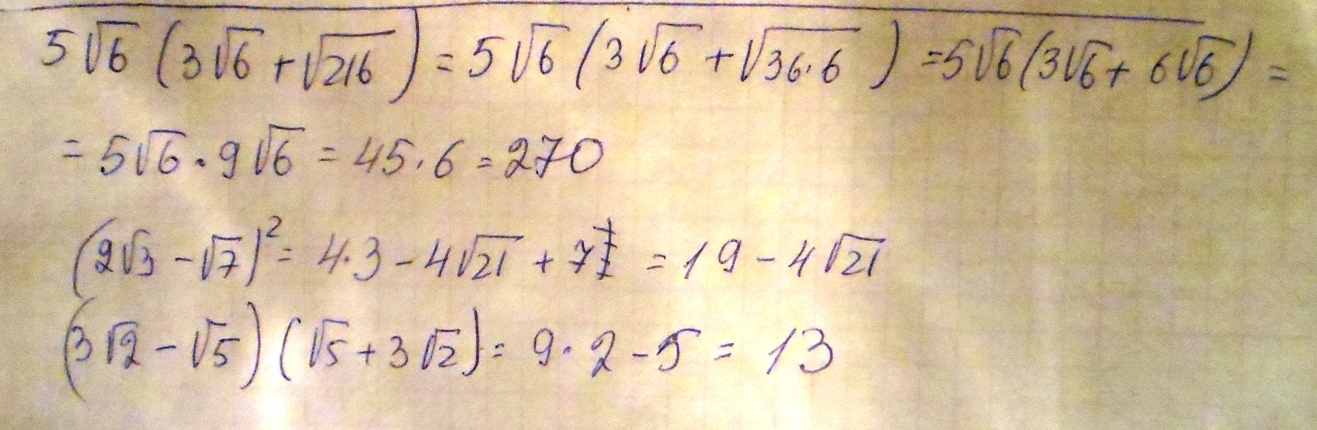 5√6 (3√6 + √216) = 5√6 (3√6 + √36·6) = 5√6 (3√6 + 6√6) =
= 5√6 · 9√6 = 45 · 6 = 270
(2√3 - √7)² = 4·3 - 4√21 + 7 = 19 - 4√21
(3√2 - √5) (√5 + 3√2) = 9 · 2 - 5 = 13